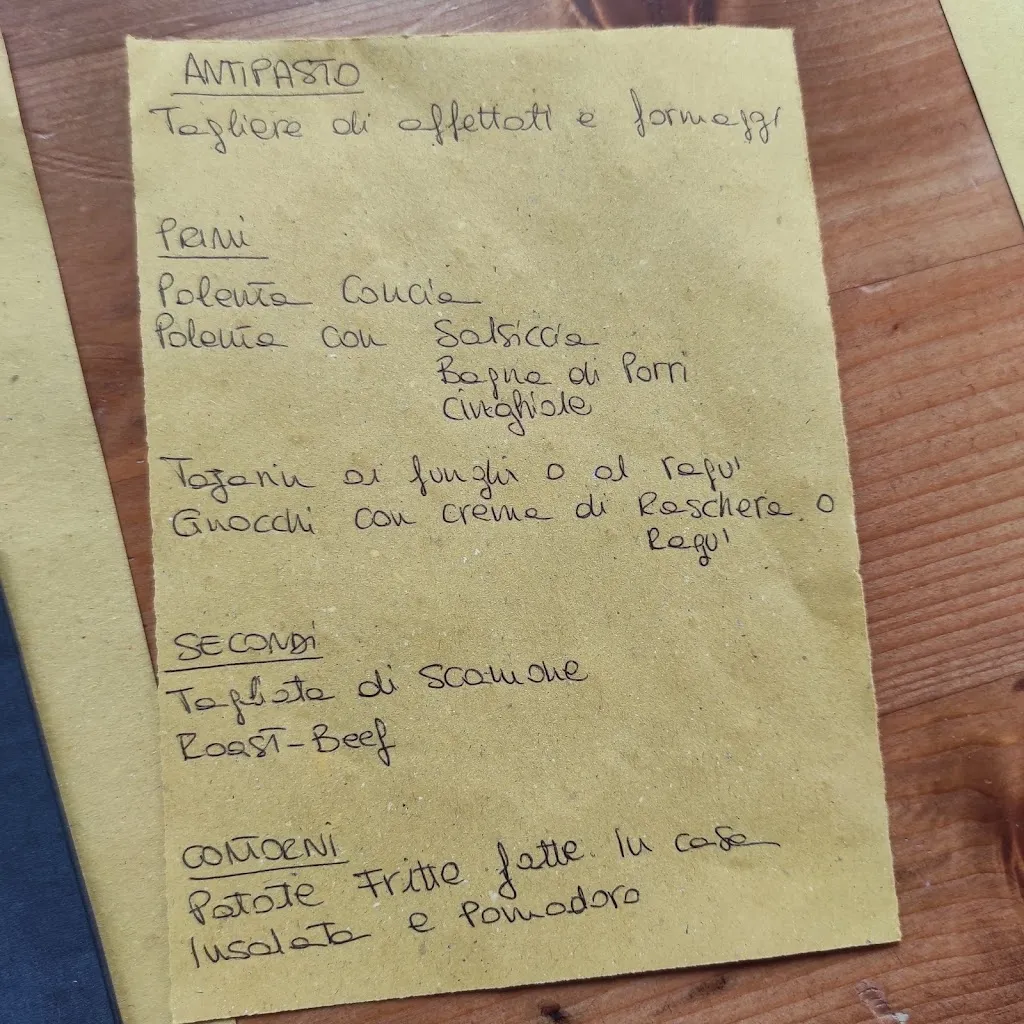 ANTIPASTO
Tagliere di affettati e formaggi
PRIMI
Polenta Concia
Polenta con Salsiccia
Bagna di Porri
Cinghiale
Tajarin ai funghi o al ragu'
Gnocchi con crema di Raschera o
Ragu'
SECONDI
Tagliata di scamone
Roast-Beef
CONTORNI
Patate Fritte fatte In casa
Insalata e Pomodoro